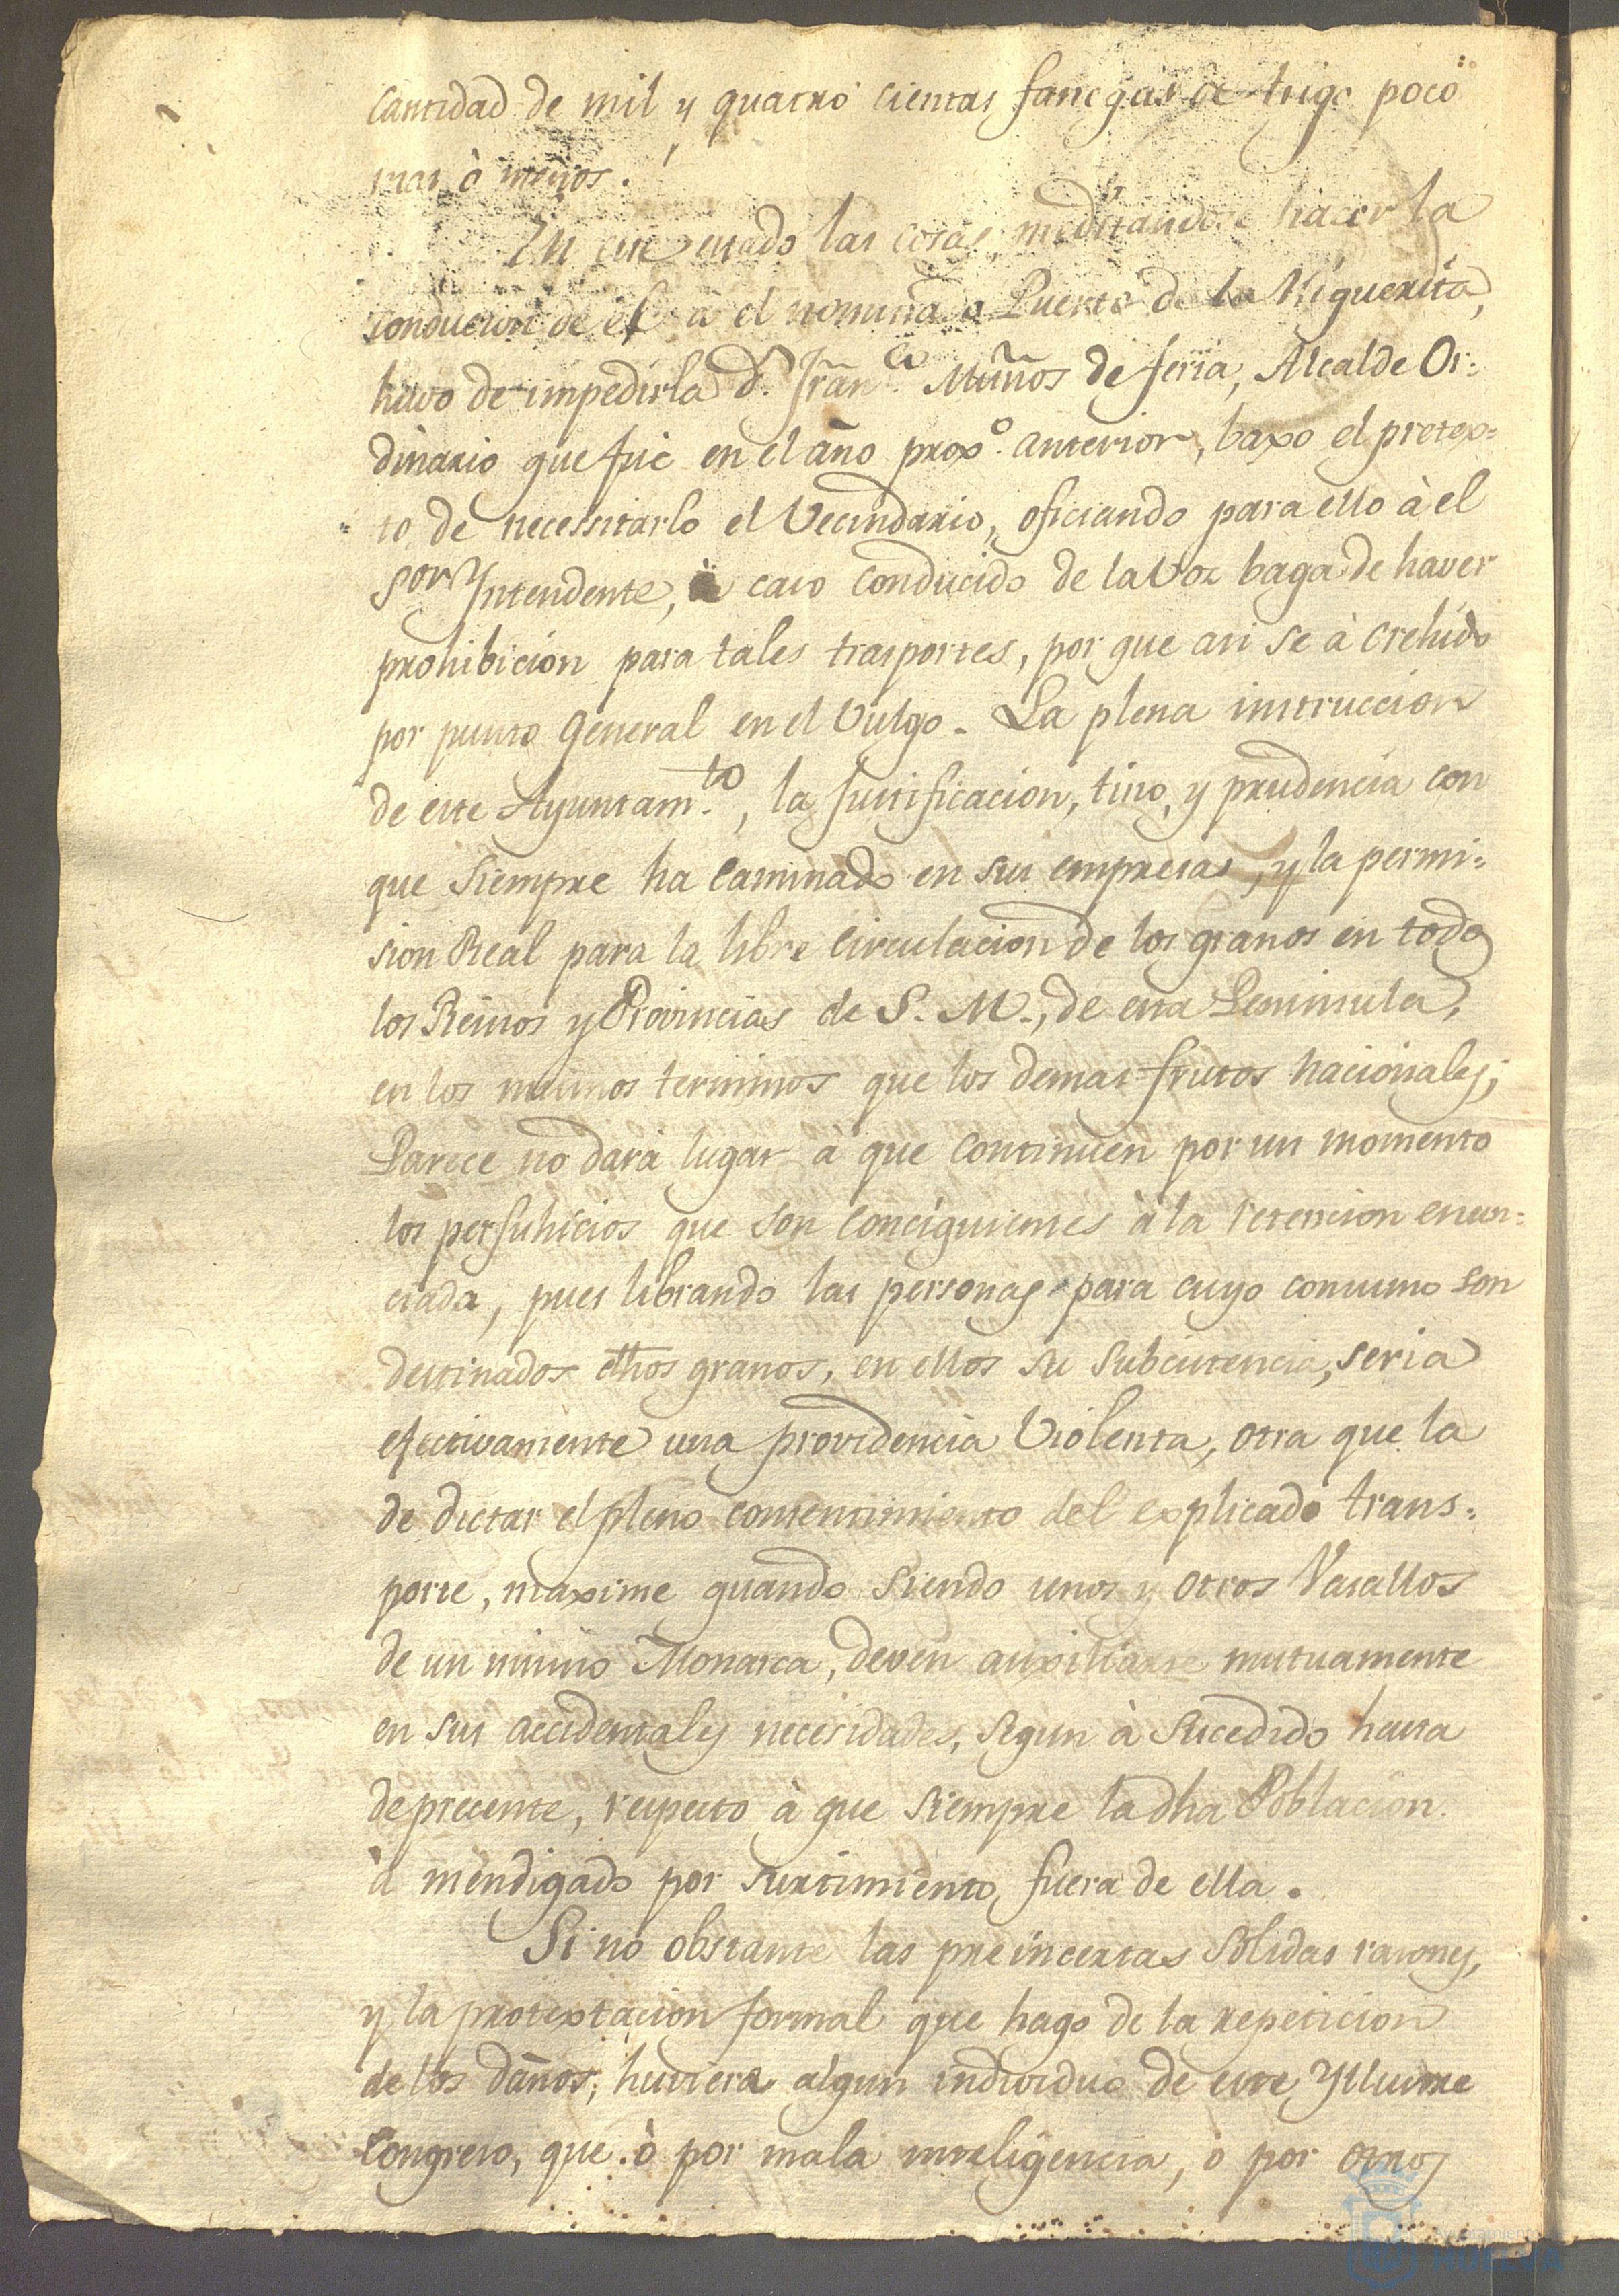 cantidad de mil y quatro cientas fanegas de trigo poco
mas ò menos.
En este estado las cosas, meditandose hacer la
conducion de el à el nomina o Puerto de la Higuerita,
huvo de impedirla d.n Fran.co Muños de feria, Alcalde Or=
dinario que fue en el año prox.o anterior, baxo el pretex=
to de necessitarlo el Vecindario, oficiando para ello à el
Sor Yntendente, caso conducido de la Voz baga de haver
prohibicion para tales trasportes, por que asi se à crehido
por punto General en el Vulgo. La plena instruccion
de este Ayuntam.to, la Justificacion, tino, y prudencia con
que siempre ha caminado en sus empresas, y la permi=
sion Real para la libre circulacion de los granos en todos
los Reinos y Provincias de S. M., de esta Peninsula,
en los mismos terminos que los demas frutos nacionales;
Parece no dará lugar à que continuen por un momento
los perjuhicios que son conciguientes à la retencion enun=
ciada, pues librando las personas para cuyo consumo son
destinados dhos granos, en ellos su subcistencia, seria
efectivamente una providencia Violenta, otra que la
de dictar el pleno consentimiento del explicado trans=
porte, maxime quando siendo unos y otros Vasallos
de un mismo Monarca, deven auxiliarse mutuamente
en sus accidentales necesidades, segun à sucedido hasta
de precente, respecto à que siempre la dha Poblacion
à mendigado por surtimiento, fuera de ella.
Si no obstante las preincertas sólidas rasones,
y la protextacion formal que hago de la repeticion
de los daños, huviera algun individuo de este Yllustre
Congreso, que ò por mala inteligencia, ò por otros
Ayuntamiento
HUELVA